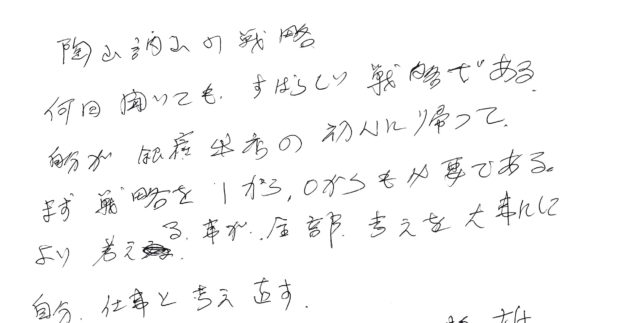 陶山訥山の戦略
何回聞いても、すばらしい戦略である。
自分が銀座出店の初心に帰って、
まず戦略を1から、0からも必要である。
より考える事が、全部、考えを大事にして
自分、仕事と考え直す。